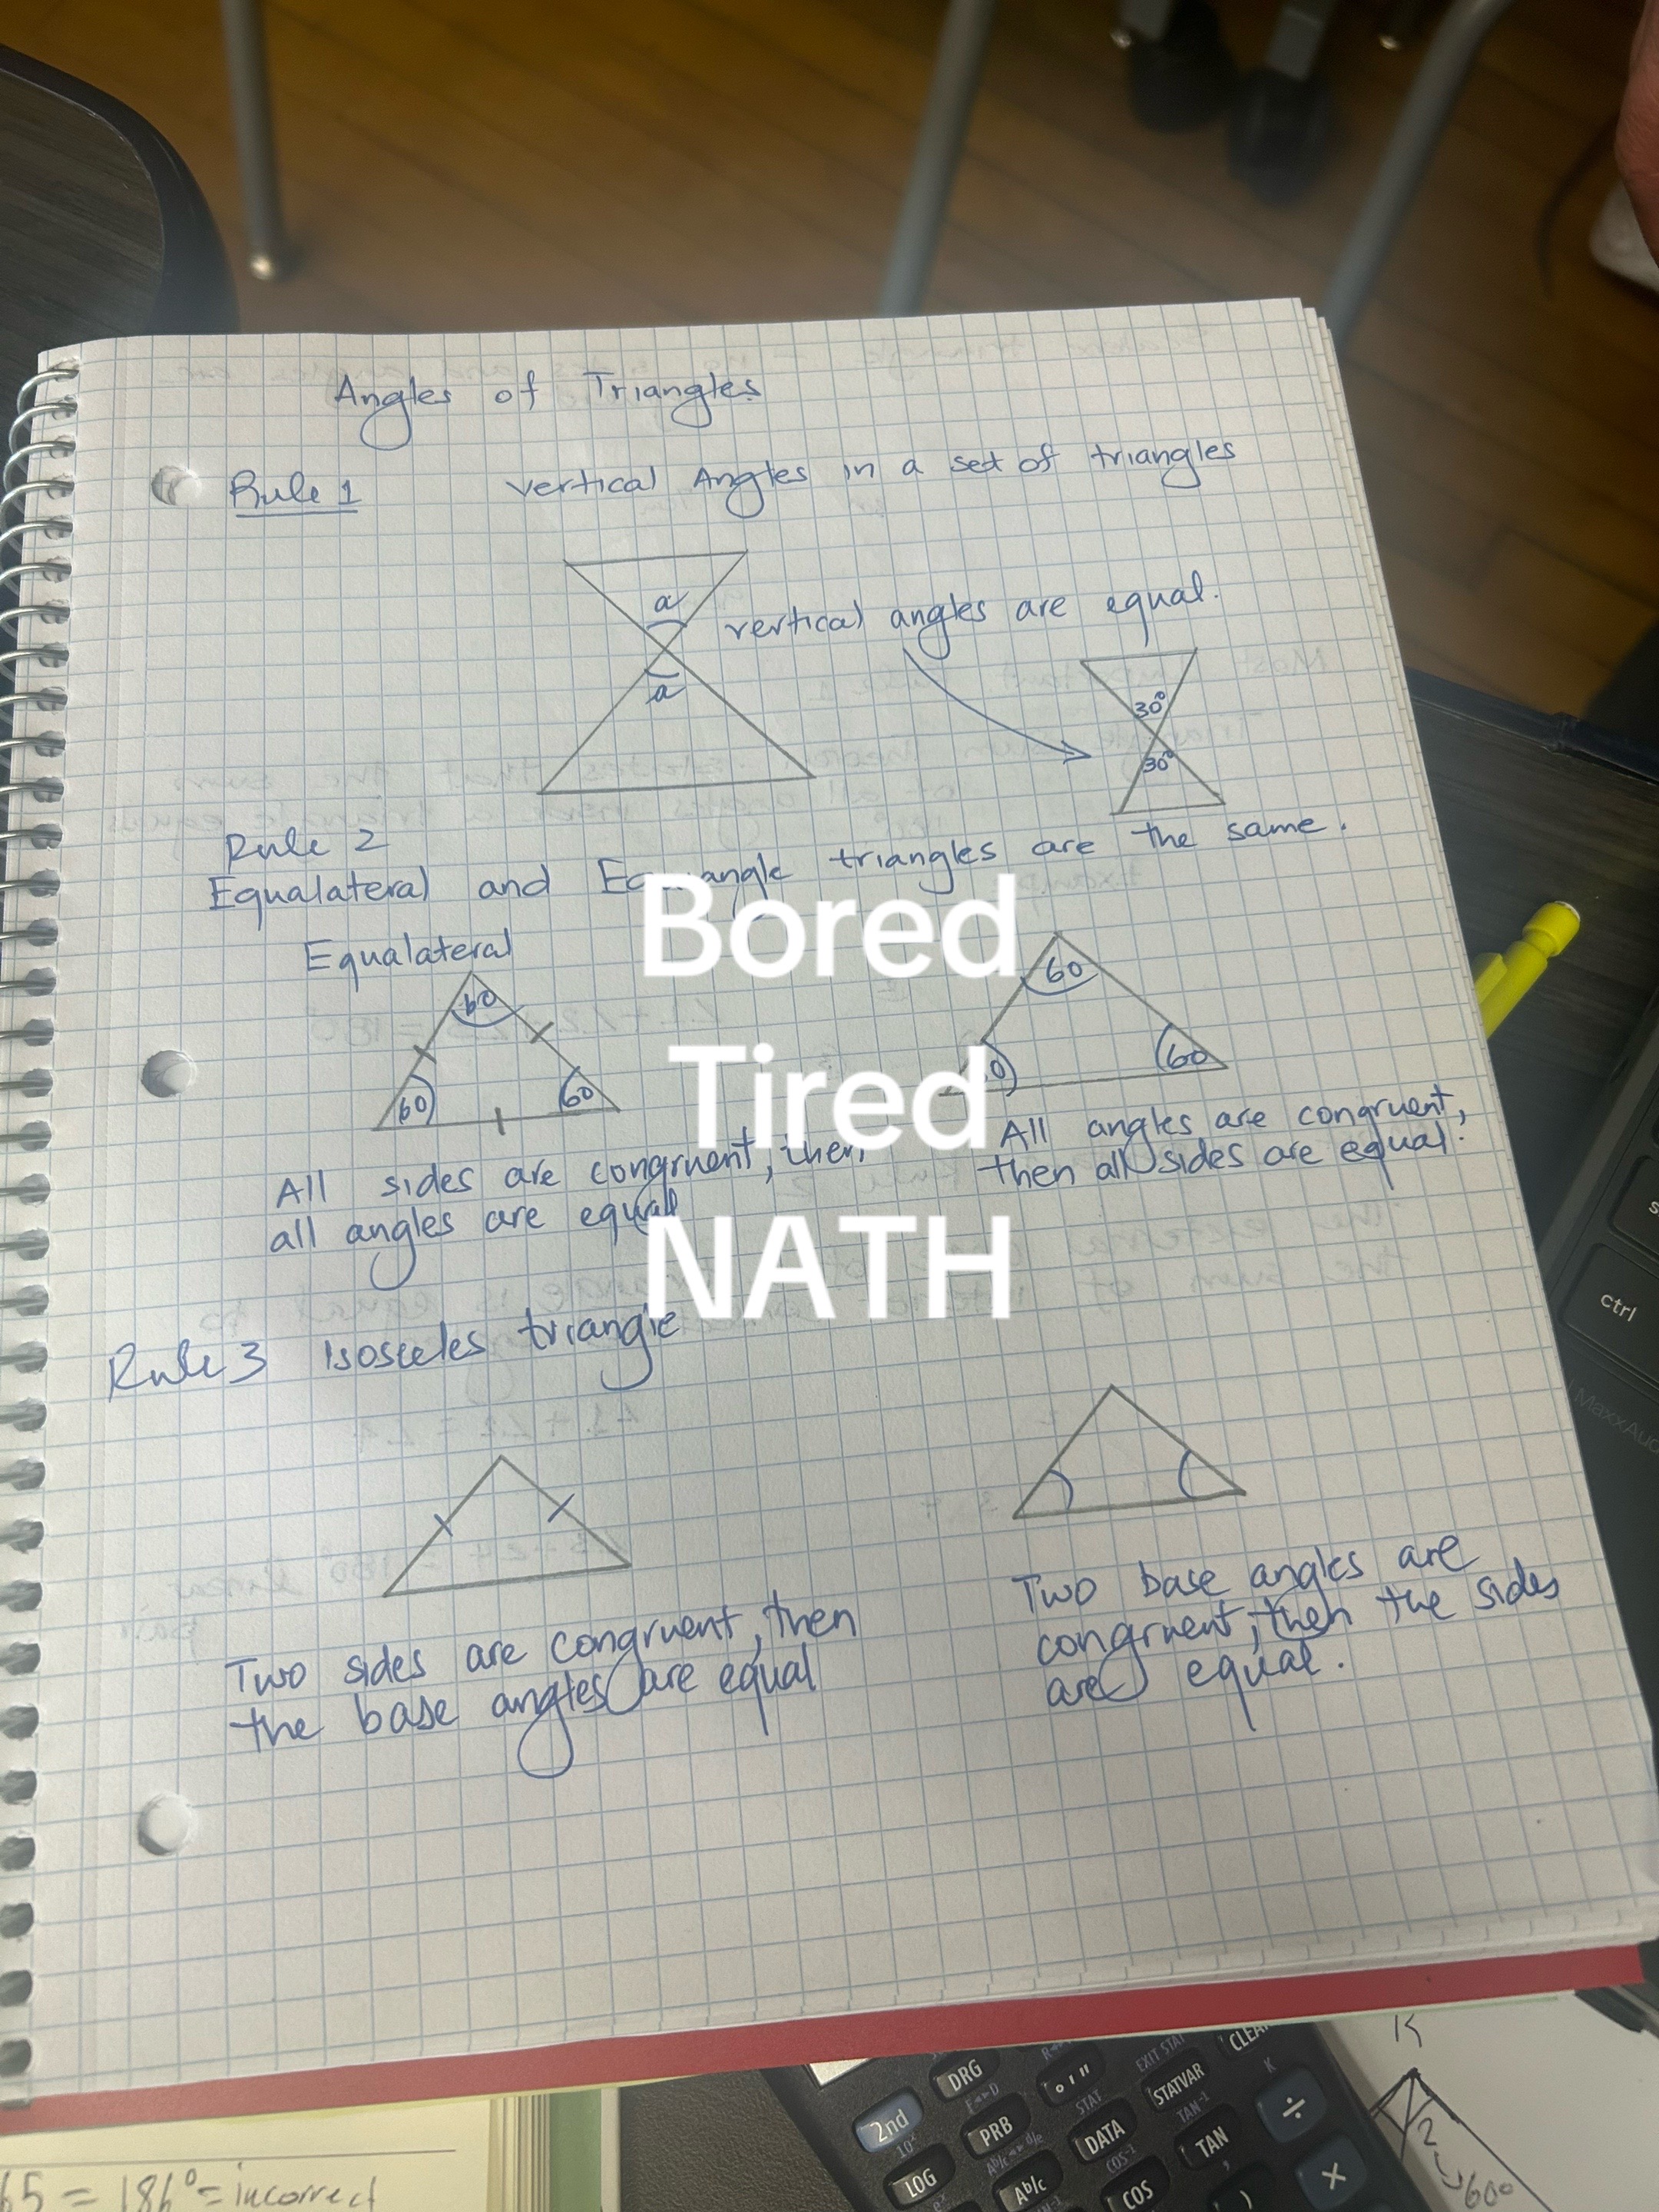 Angles of Triangles
Rule 1 vertical Angles in a set of triangles
a
vertical angles are equal.
a
30°
30°
Rule 2
Equalateral and triangles are the same.
Bored
Equalateral
60
60
60
60
60
Tired
All sides are congruent, then
all angles are equal
All angles are congruent,
then all sides are equal.
NATH
Rule 3 Isosceles triangle
Two sides are congruent, then
the base angles are equal
Two base angles are
congruent, then the sides
are equal.
ctrl
MaxxAud
65 = 186° = incorrect
2nd
DRG
PRB
LOG
Ab/c
° ' "
DATA
STAT
EXIT STAT
STATVAR
CLEAR
K
TAN⁻¹
TAN
COS⁻¹
COS
÷
×
)
K
2
60°